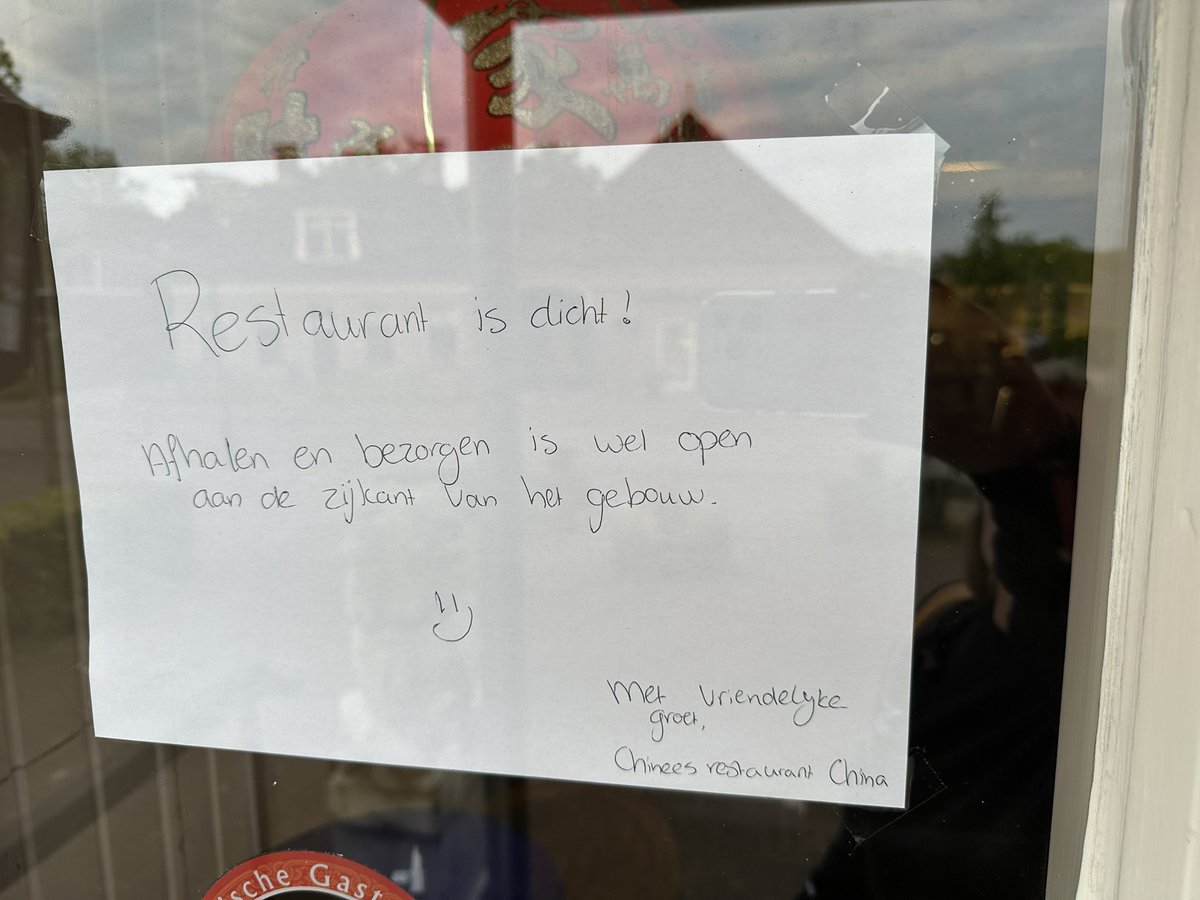 Restaurant is dicht!
Afhalen en bezorgen is wel open
aan de zijkant van het gebouw.
Met vriendelyke
groet,
Chinees restaurant China
ische Gast